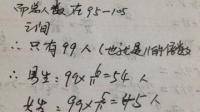 而总人数在95-105
之间
∴只有99人(也只是11的倍数)
∴男生:99×6/11=54人
女生:99×5/11=45人